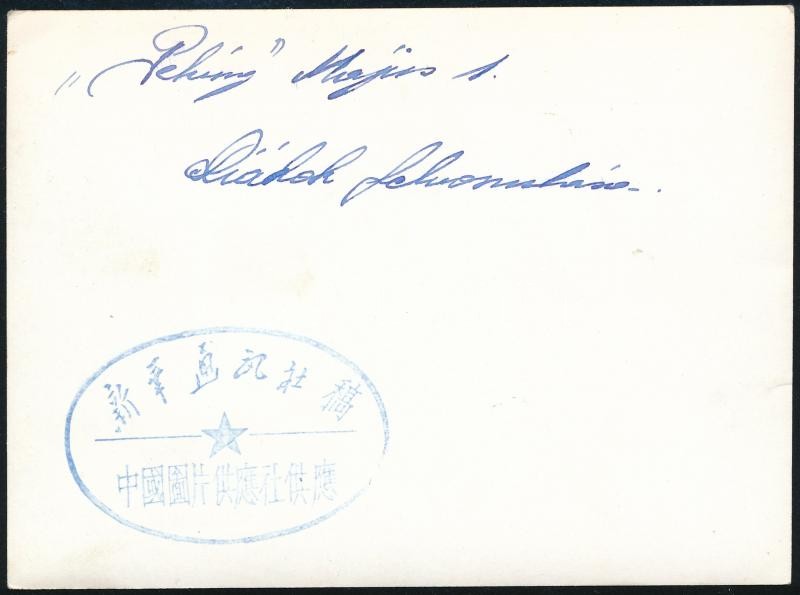 „Peking" Május 1.
Diákok felvonulása.
新華通訊社稿
中國圖片供應社供應